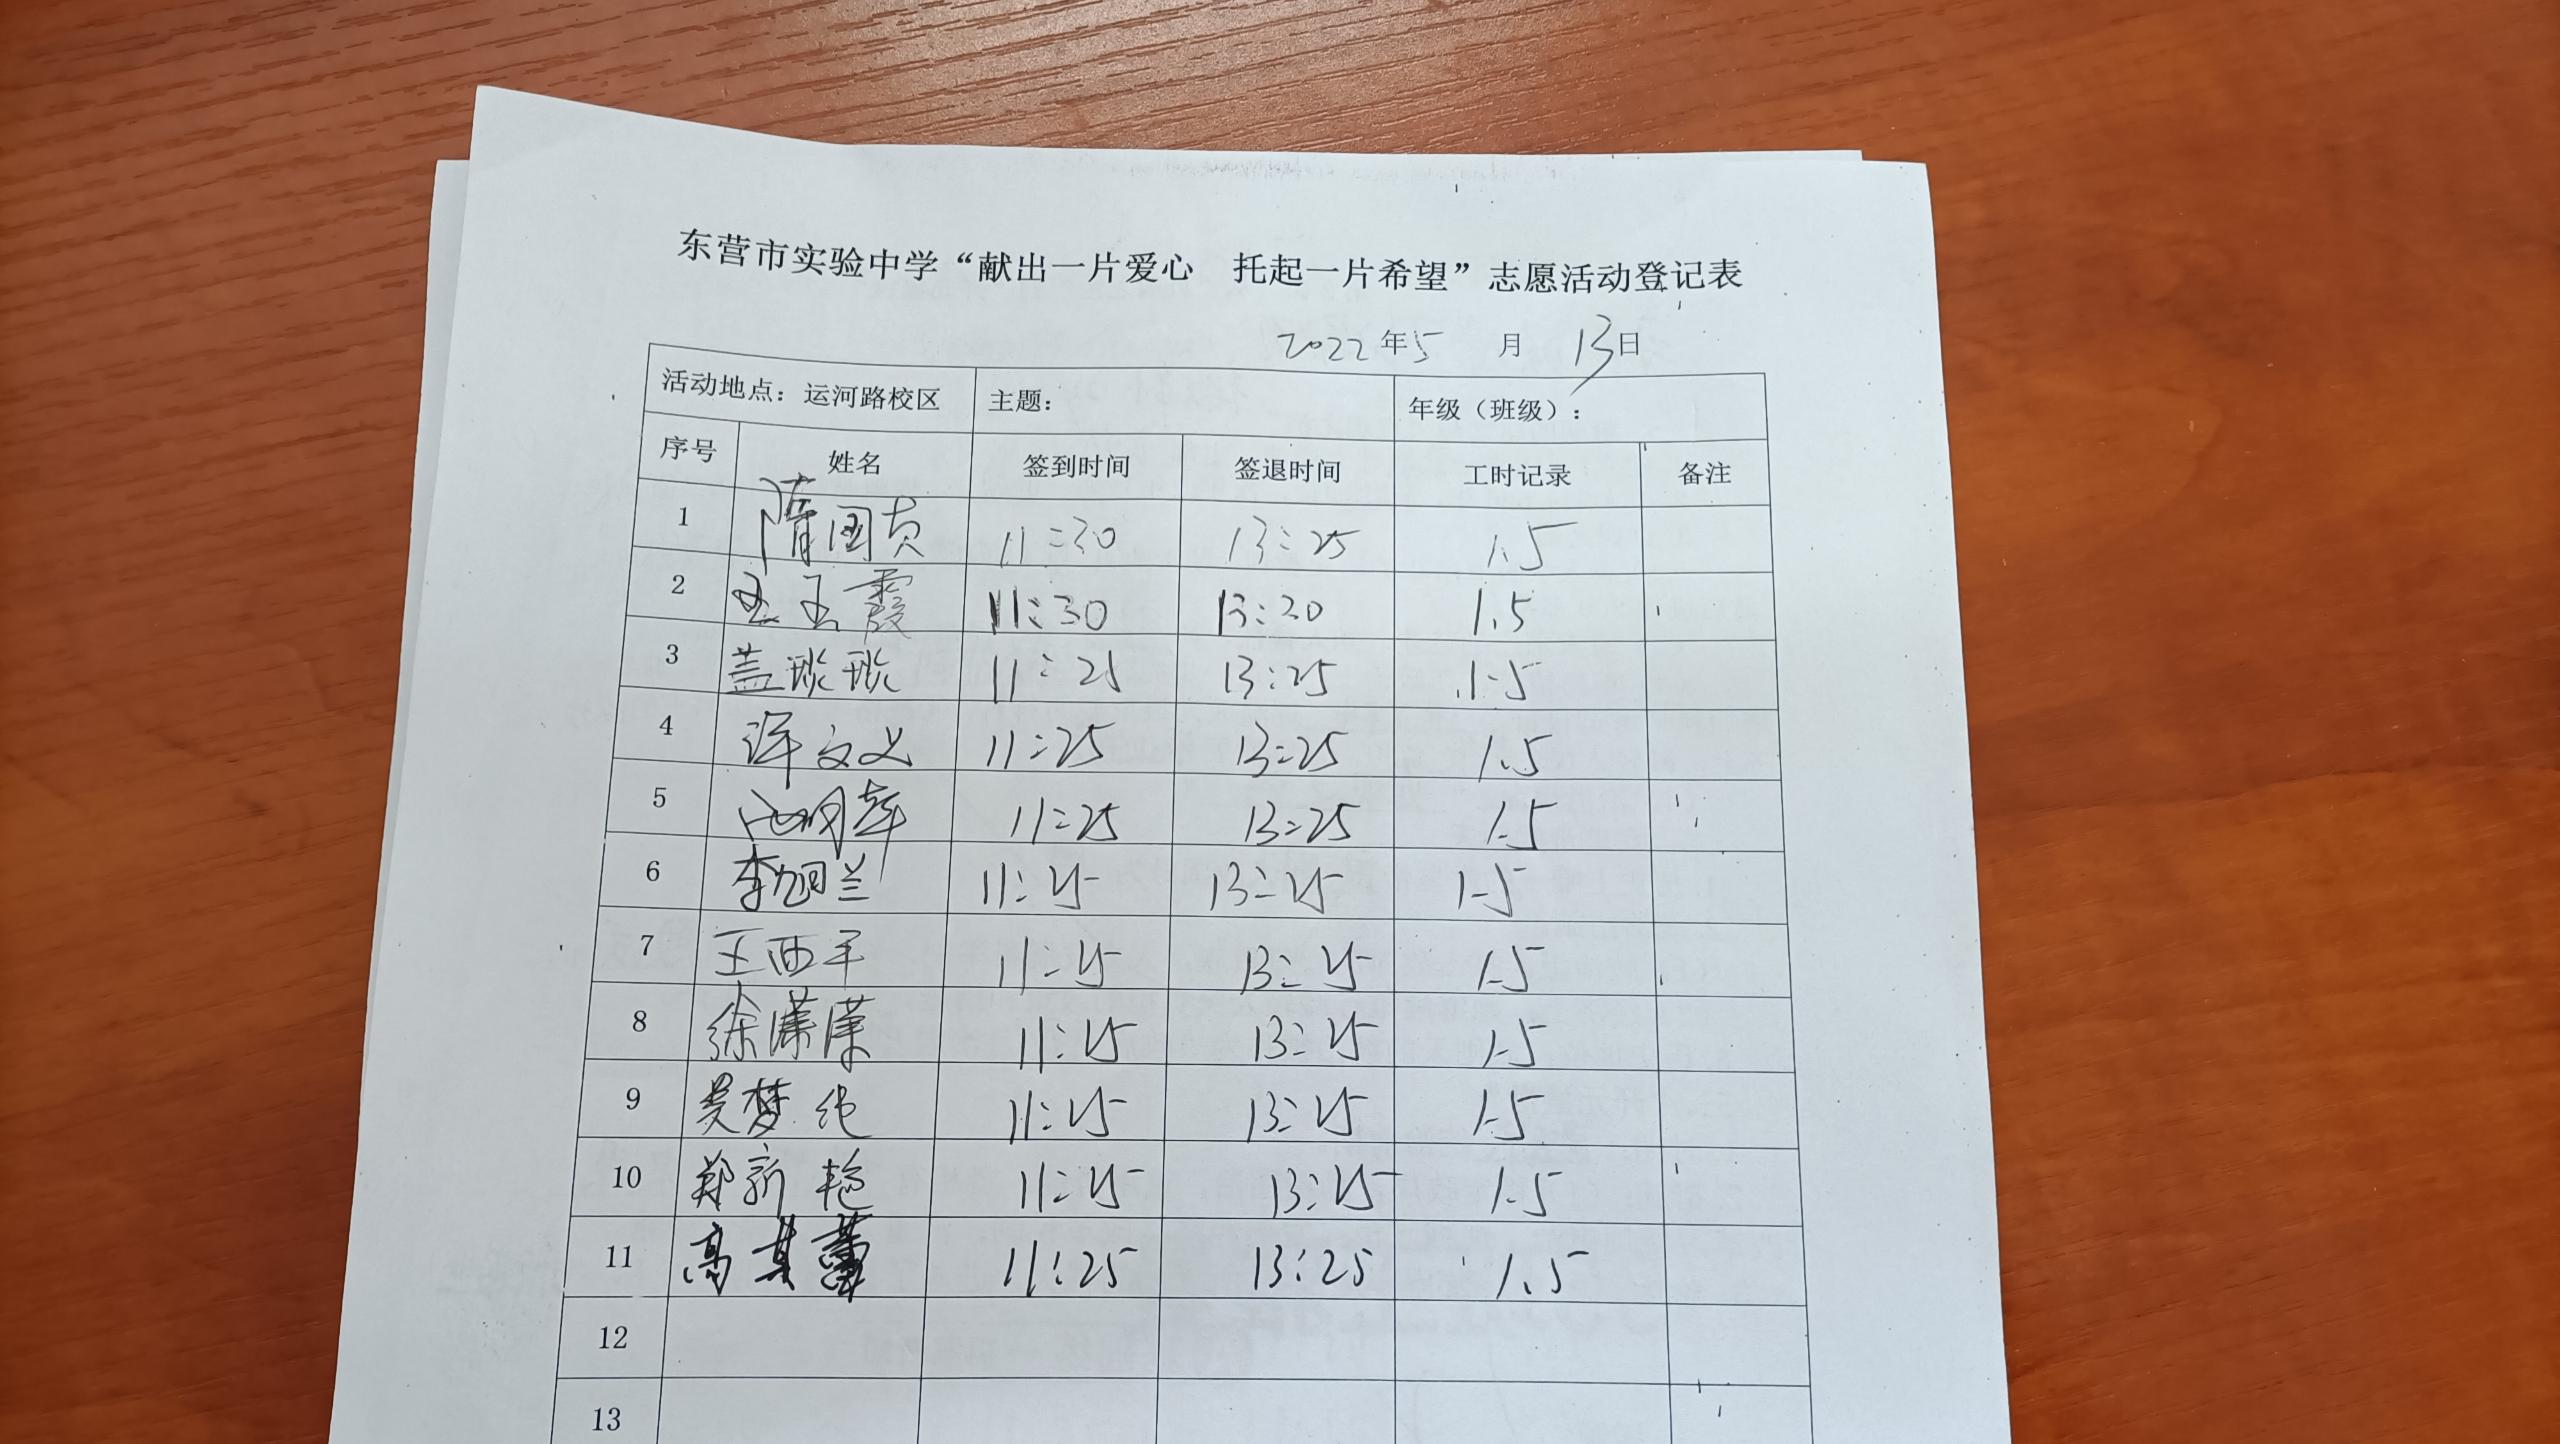 东营市实验中学“献出一片爱心 托起一片希望”志愿活动登记表
2022年5月13日
活动地点：运河路校区 主题： 年级（班级）：
序号 姓名 签到时间 签退时间 工时记录 备注
1 隋国贞 11:30 13:25 1.5
2 王玉霞 11:30 13:20 1.5
3 盖琰琰 11:25 13:25 1.5
4 文义 11:25 13:25 1.5
5 11:25 13:25 1.5
6 李旭兰 11:25 13:25 1.5
7 王西平 11:25 13:25 1.5
8 徐潇潇 11:25 13:25 1.5
9 吴梦纯 11:25 13:25 1.5
10 郑新艳 11:25 13:25 1.5
11 高其蕾 11:25 13:25 1.5
12
13